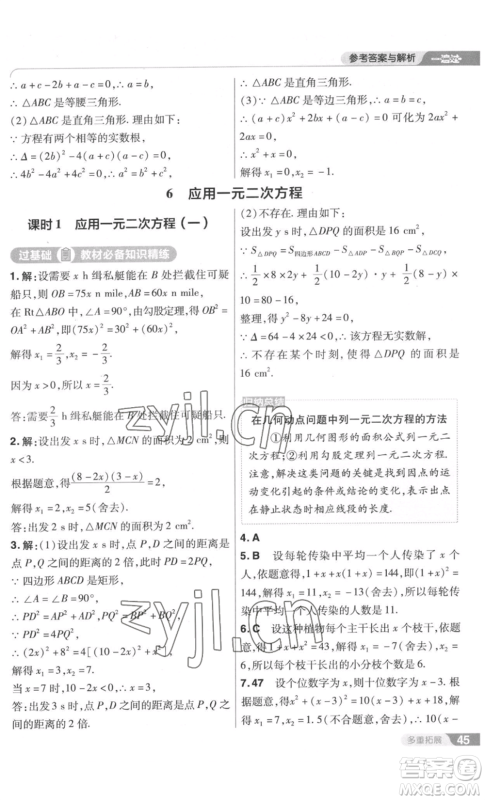 参考答案与解析
∴ a+c-2b+a-c=0, ∴ a=b.
∴ △ABC 是等腰三角形.
(2) △ABC 是直角三角形. 理由如下:
∵ 方程有两个相等的实数根,
∴ Δ=(2b)²-4(a+c)(a-c)=0,
∴ 4b²-4a²+4c²=0, ∴ a²=b²+c².
∴ △ABC 是直角三角形.
(3) ∵ △ABC 是等边三角形,
∴ (a+c)x²+2bx+(a-c)=0 可整理为
2ax²+2ax=0, ∴ x²+x=0,
解得 x₁=0, x₂=-1.
6 应用一元二次方程
课时1 应用一元二次方程(一)
过基础 教材必备知识精练
1. 解:设需要 x h 缉私艇能在 B 处拦截住可疑
船只,则 OB=75x n mile, AB=60x n mile.
在 Rt△ABO 中, ∠A=90°, 由勾股定理,得 OB²=
OA²+AB², 即(75x)²=30²+(60x)²,
解得 x₁=2/3, x₂=-2/3.
因为 x>0, 所以 x=2/3.
答:需要 2/3 h 缉私艇能在 B 处拦截住可疑船只.
x<3.
根据题意,得 (8-2x)(3-x)/2=2,
解得 x₁=2, x₂=5(舍去).
答:出发 2 s 时, △MCN 的面积为 2 cm².
3. 解:(1)设出发 x s 时,点 P,D 之间的距离是
点 P,Q 之间的距离的 2 倍,此时 PD=2PQ.
∵ 四边形 ABCD 是矩形,
∴ ∠A=∠B=90°,
∴ PD²=AP²+AD², PQ²=BP²+BQ²,
解得 x₁=3, x₂=7.
当 x=7 时, 10-2x=-4<0, ∴ x=3.
答:出发 3 s 时,点 P,D 之间的距离是点 P,Q
之间的距离的 2 倍.
(2)不存在. 理由如下:
设出发 y s 时, △DPQ 的面积为 16 cm²,
∴ 1/2×8×2y+1/2(10-2y)·2y+1/2(8-y)×
10=80-16,
整理,得 y²-8y+24=0,
∵ Δ=64-4×24<0, ∴ 该方程无实数解.
∴ 不存在某个时刻,使得 △DPQ 的面积为
16 cm².
归纳总结
在几何动点问题中列一元二次方程的方法
①利用几何图形的面积公式列一元二
次方程;②利用勾股定理列一元二次方程.
注意,解决这类问题的关键是找到因点的运
动变化引起的条件或结论的变化规律,然后
在静止状态时构造相等线段或图形.
4. A
5. B 设每轮传染中平均一个人传染了 x 个
人,依题意,得 1+x+x(1+x)=144,
解得 x₁=11, x₂=-13(舍去).
∴ 每轮传染中平均一个人传染的人数是 11.
6. C 设这种植物每个主干长出 x 个枝干,依
题意,得 1+x+x²=43, 解得 x₁=-7(舍去),
x₂=6. ∴ 每个枝干长出的小分枝个数为 6.
7. 47 设个位数字为 x, 则十位数字为(x-3).
根据题意,得 x²=10(x-3)+x-3,
解得 x₁=
多重拓展 45
zyjl.cn
zyjl.cn
答案圈
MXQE.COM